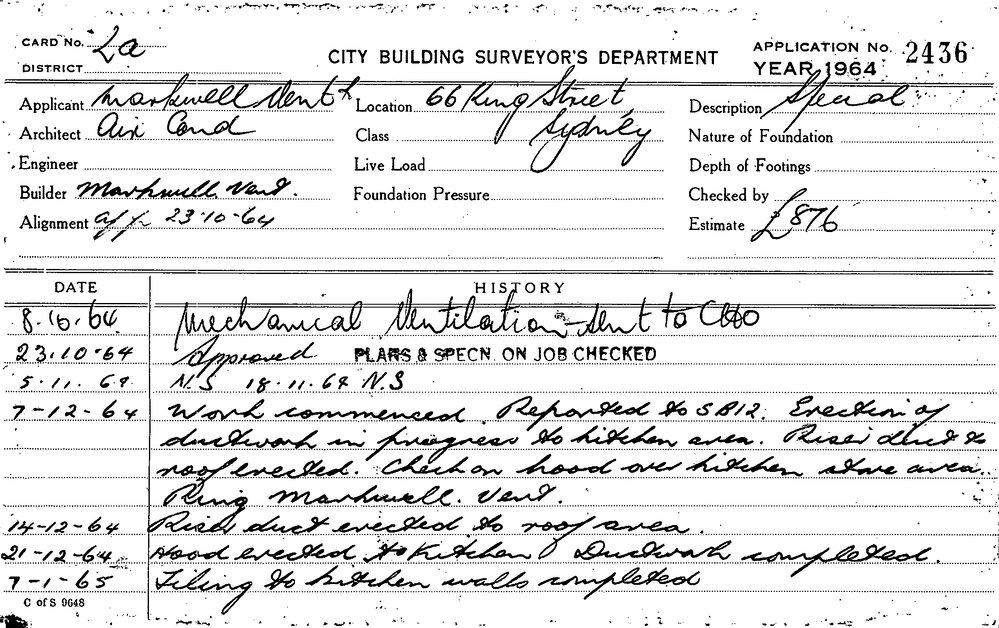 CARD No. 2a
CITY BUILDING SURVEYOR'S DEPARTMENT
APPLICATION No. 2436
DISTRICT
YEAR 1964
Applicant Markwell Vent
Location 66 King Street,
Description Special
Architect Air Cond
Class Sydney
Nature of Foundation
Engineer
Live Load
Depth of Footings
Builder Markwell. Vent.
Foundation Pressure
Checked by
Alignment 23-10-64
Estimate £876
DATE HISTORY
8.10.64. Mechanical Ventilation - Sent to CHO
23.10-64 Approved PLANS & SPECN. ON JOB CHECKED
5.11.64 N.S 18.11.64 N.S
7-12-64 Work commenced. Reported to SB12. Erection of
ductwork in progress to kitchen area. Riser duct to
roof erected. Check on hood over kitchen stove area.
Ring Markwell. Vent.
14-12-64 Riser duct erected to roof area.
21-12-64 Hood erected to Kitchen Ductwork completed.
7-1-65 Tiling to kitchen walls completed
C of S 9648